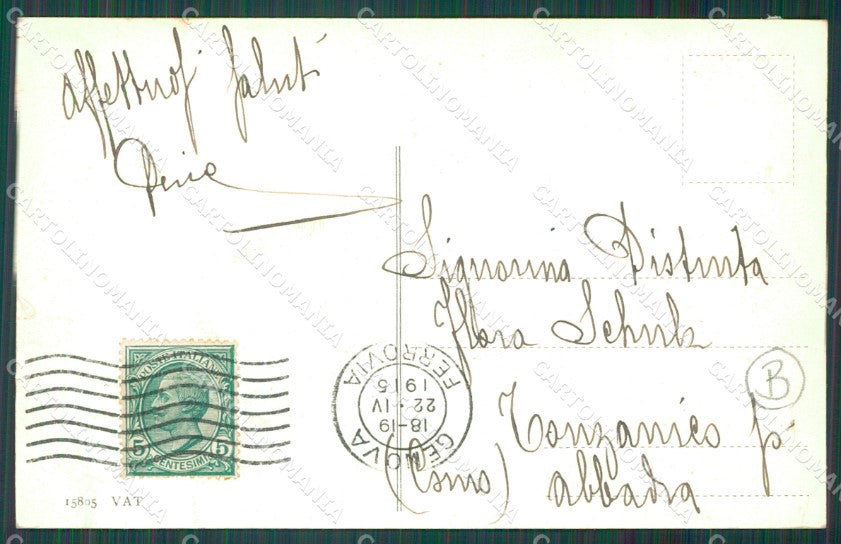 affettuosi saluti
Signorina Distinta
Flora Schulz
Tonzanico p.
(Como) Abbadia
POSTE ITALIANE
5 5
CENTESIMI
GENOVA
18-19
22·IV
1915
FERROVIA
B
15805 VAT
CARTOLINOMANIA